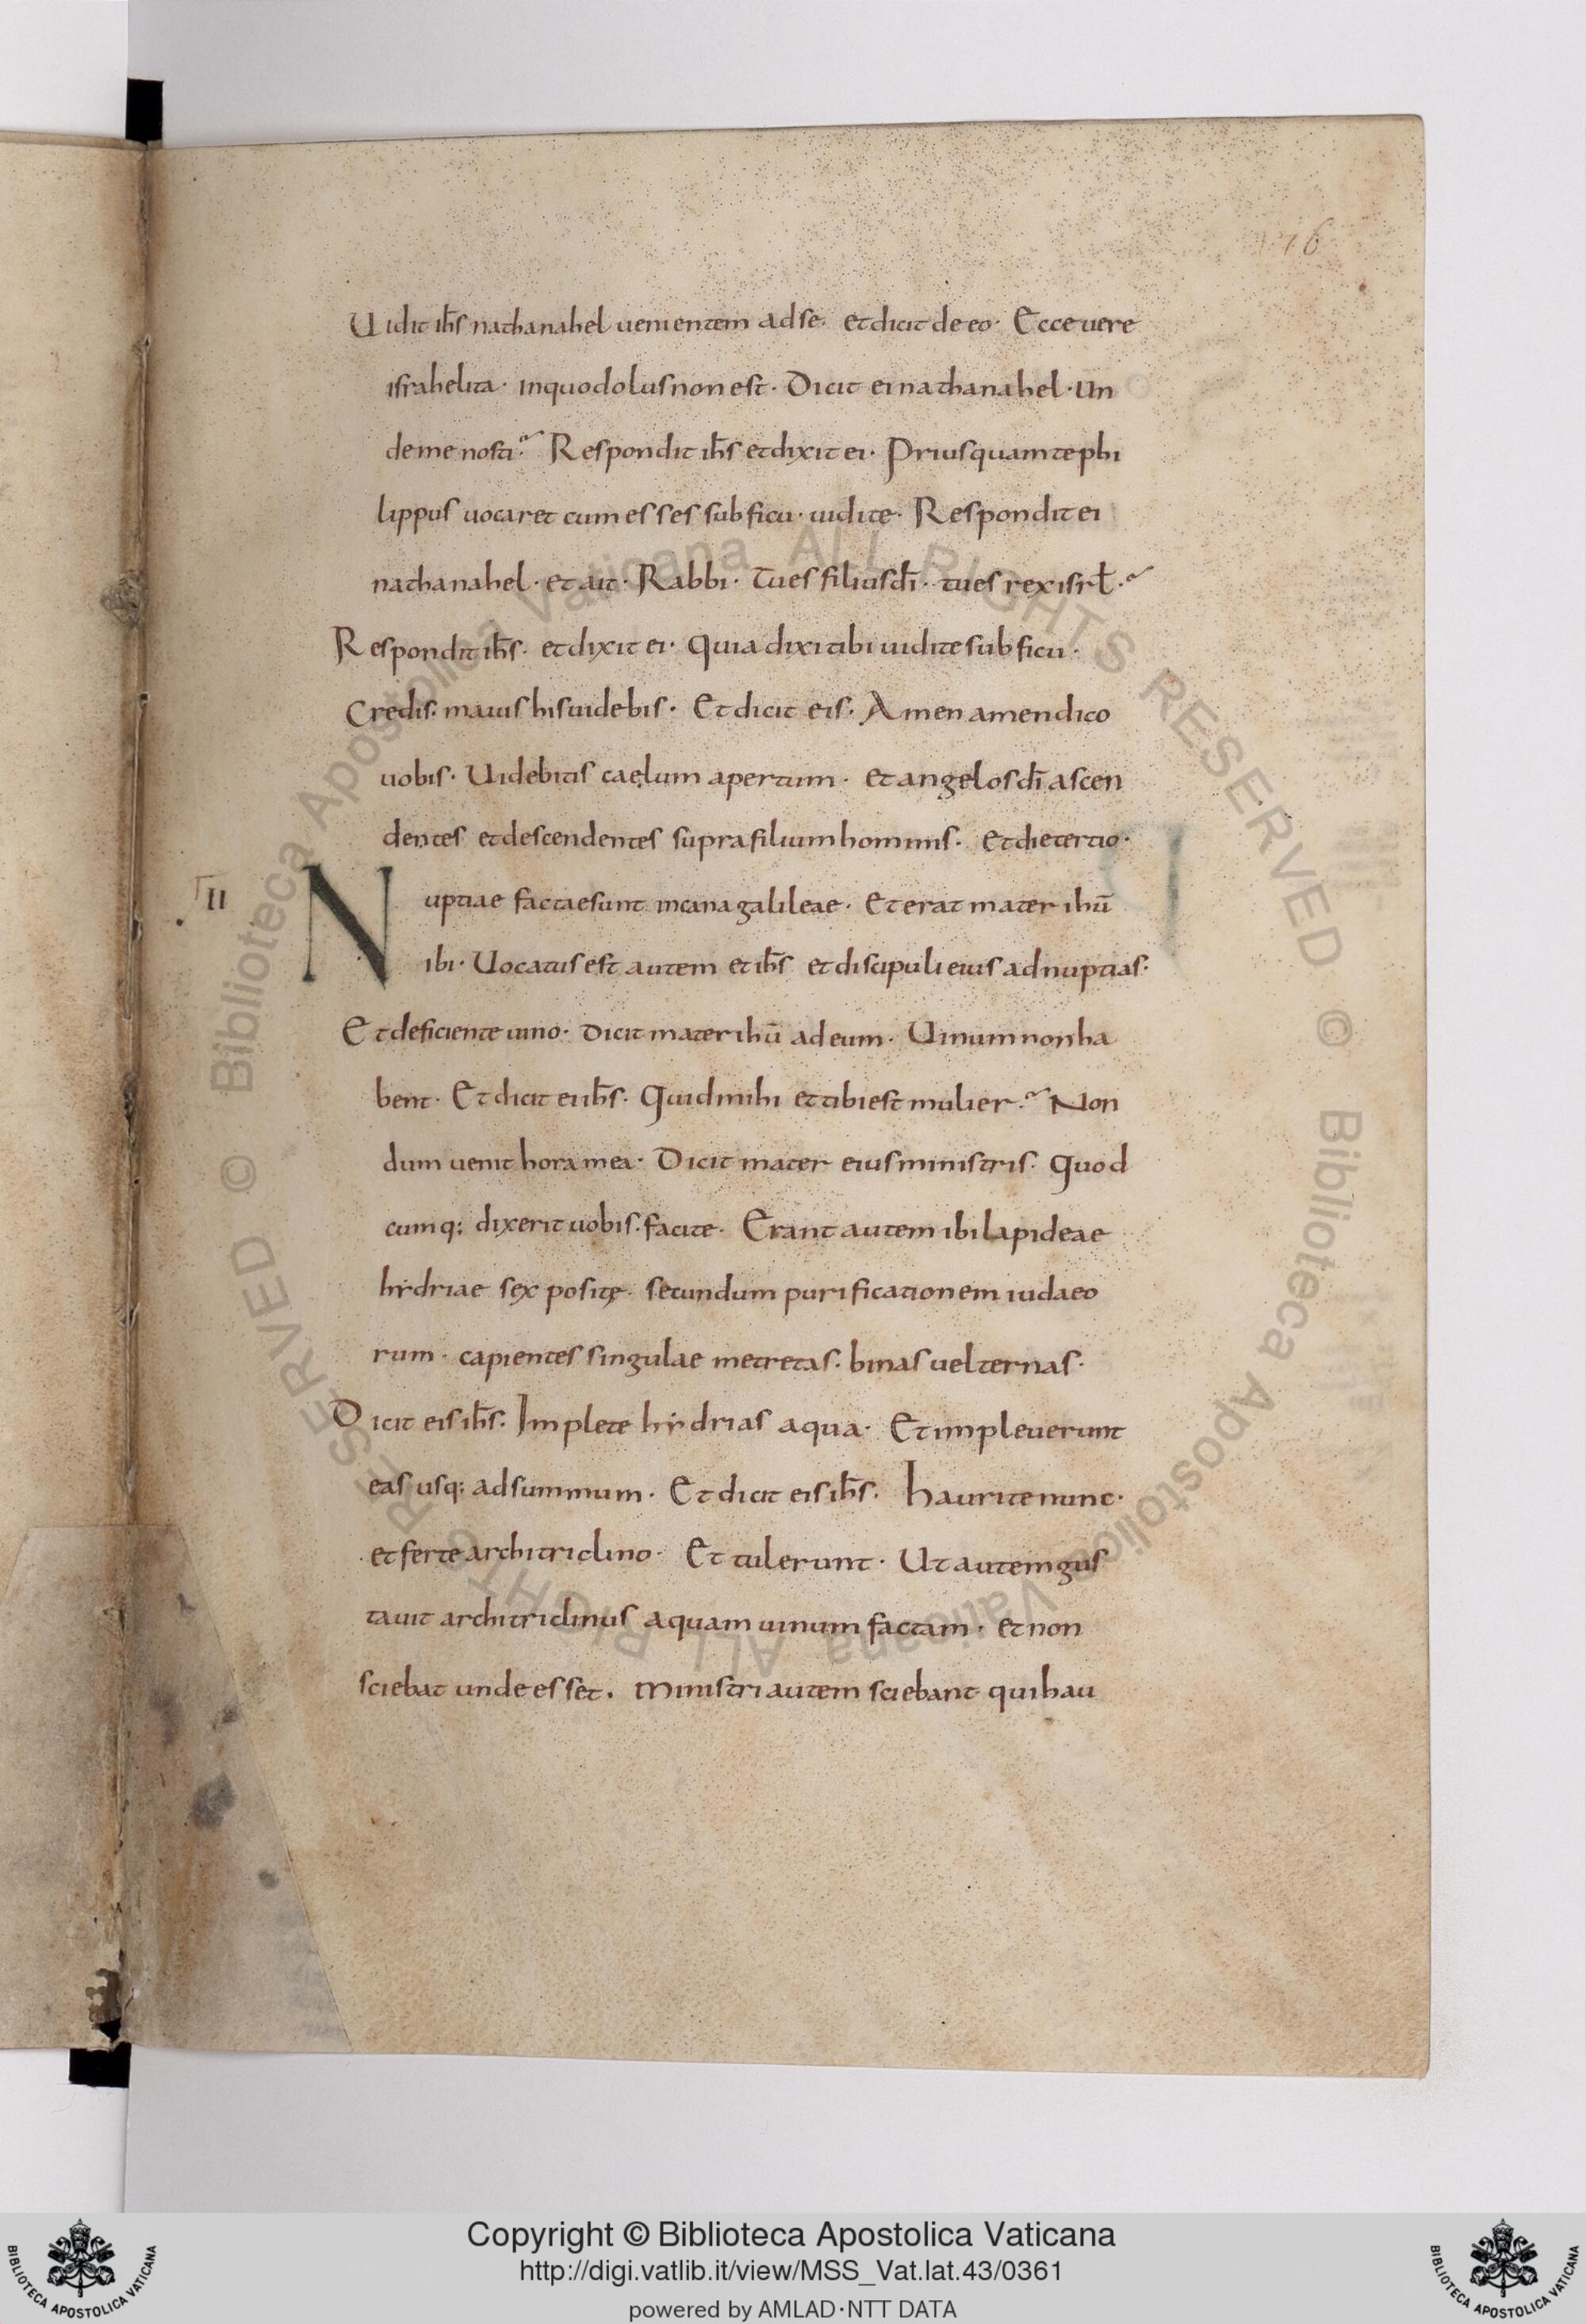 176
Uidit ih̅s nathanahel uenientem adse. et dicit de eo. Ecce uere
israhelita. inquo dolus non est. Dicit ei nathanahel. Un
de me nosti? Respondit ih̅s et dixit ei. Priusquam te phi
lippus uocaret cum esses sub ficu. uidi te. Respondit ei
nathanahel. et ait. Rabbi. Tu es filius dī. tu es rex isrł.
Respondit ih̅s. et dixit ei. Quia dixi tibi uidi te sub ficu.
Credis. maius his uidebis. Et dicit eis. Amen amen dico
uobis. Uidebitis caelum apertum. et angelos dī ascen
dentes et descendentes supra filium hominis. Et die tertio.
II
Nuptiae factae sunt in cana galileae. Et erat mater ihū
ibi. Uocatus est autem et ih̅s et discipuli eius ad nuptias.
Et deficiente uino. Dicit mater ihū ad eum. Uinum non ha
bent. Et dicit ei ih̅s. Quid mihi et tibi est mulier? Non
dum uenit hora mea. Dicit mater eius ministris. Quod
cumq; dixerit uobis. facite. Erant autem ibi lapideae
hydriae sex positę. secundum purificationem iudaeo
rum. capientes singulae metretas. binas uel ternas.
Dicit eis ih̅s. Implete hydrias aqua. Et impleuerunt
eas usq; ad summum. Et dicit eis ih̅s. Haurite nunc.
et ferte architriclino. Et tulerunt. Ut autem gus
tauit architriclinus aquam uinum factam. et non
sciebat unde esset. Ministri autem sciebant qui hau
© Biblioteca Apostolica Vaticana ALL RIGHTS RESERVED © Biblioteca Apostolica Vaticana ALL RIGHTS RESERVED
BIBLIOTECA APOSTOLICA VATICANA
Copyright © Biblioteca Apostolica Vaticana
http://digi.vatlib.it/view/MSS_Vat.lat.43/0361
powered by AMLAD·NTT DATA
BIBLIOTECA APOSTOLICA VATICANA